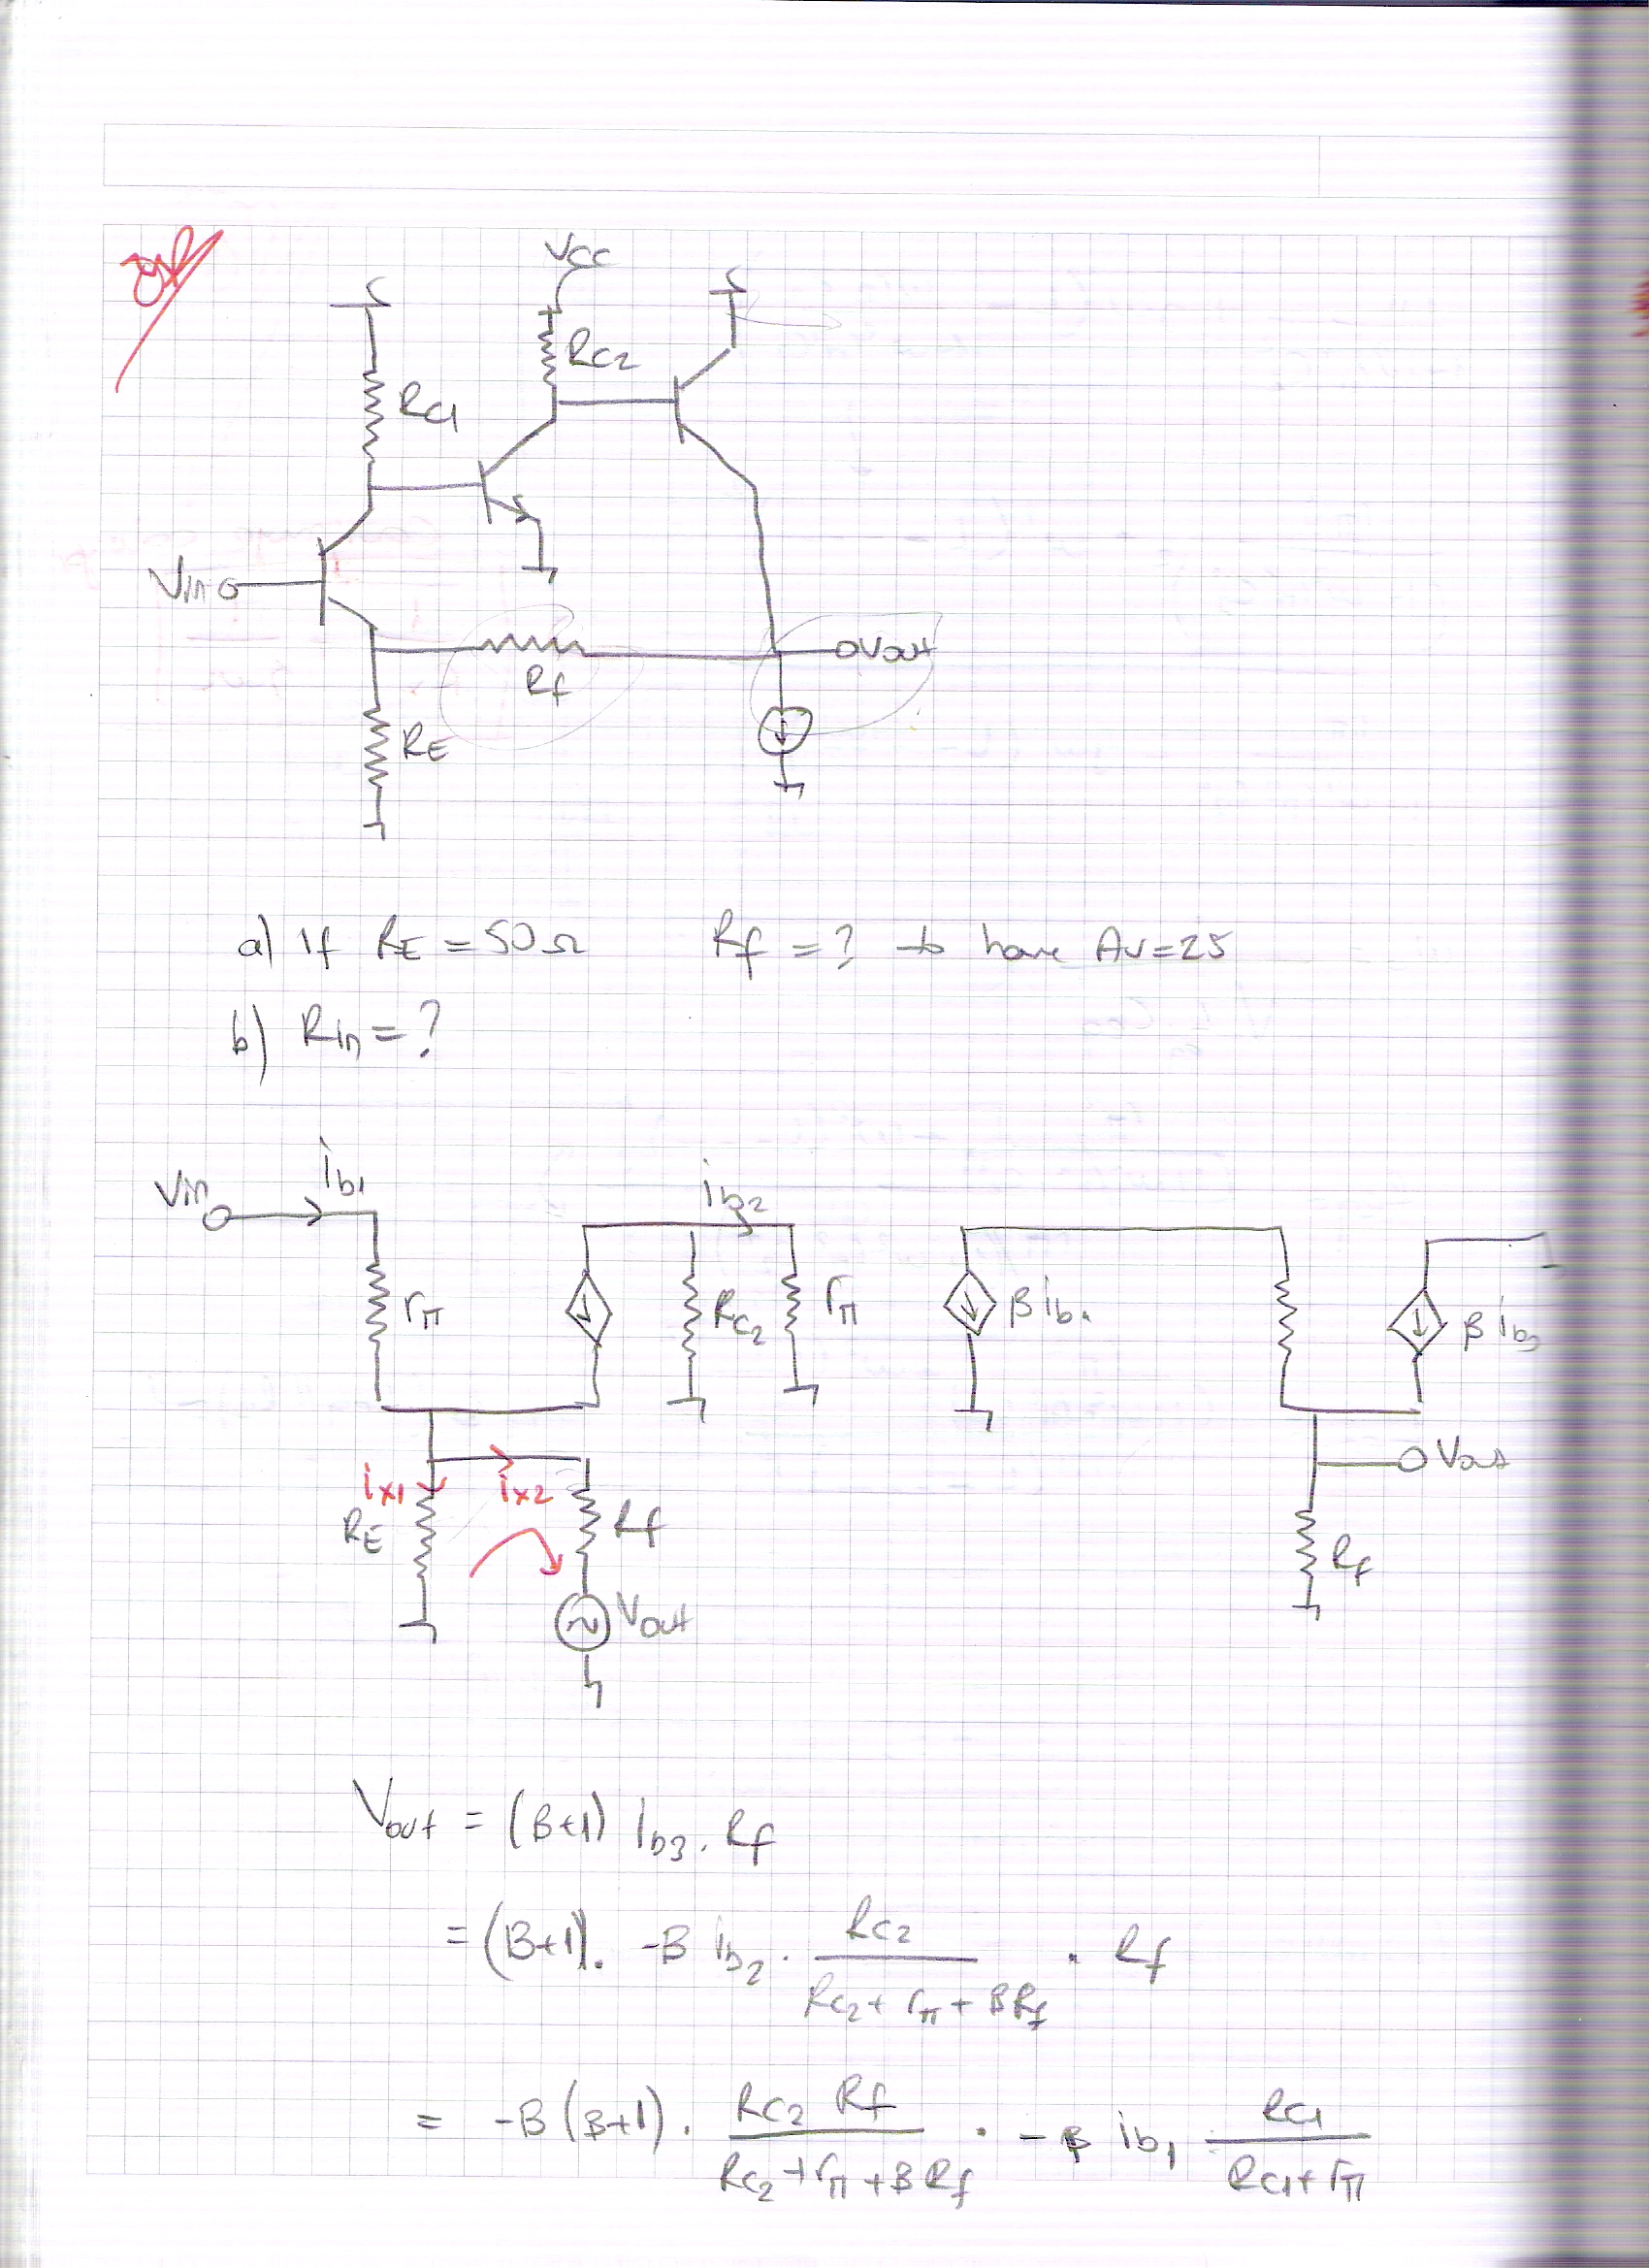 ör
Vcc
RC2
RC1
Vin
Vout
Rf
RE
a) If RE = 50Ω Rf = ? to have Av=25
b) Rin = ?
Vin ib1 ib2
rπ RC2 rπ β ib. β ib3
ix1 ix2 Vout
RE Rf Rf
Vout
Vout = (B+1) ib3 . Rf
= (B+1). -B ib2 . RC2 / (RC2 + rπ + BRf) . Rf
= -B (B+1) . RC2 Rf / (RC2 + rπ + B Rf) . -β ib1 RC1 / (RC1 + rπ)